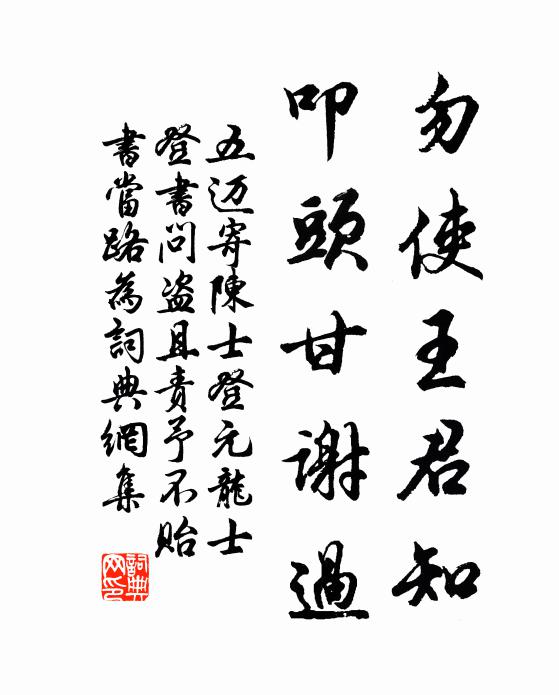 勿使王君知
叩頭甘謝過
五迈寄陳士登元龍士
登書问盗且责予不贻
書當路為詞典網集
詞典
网印